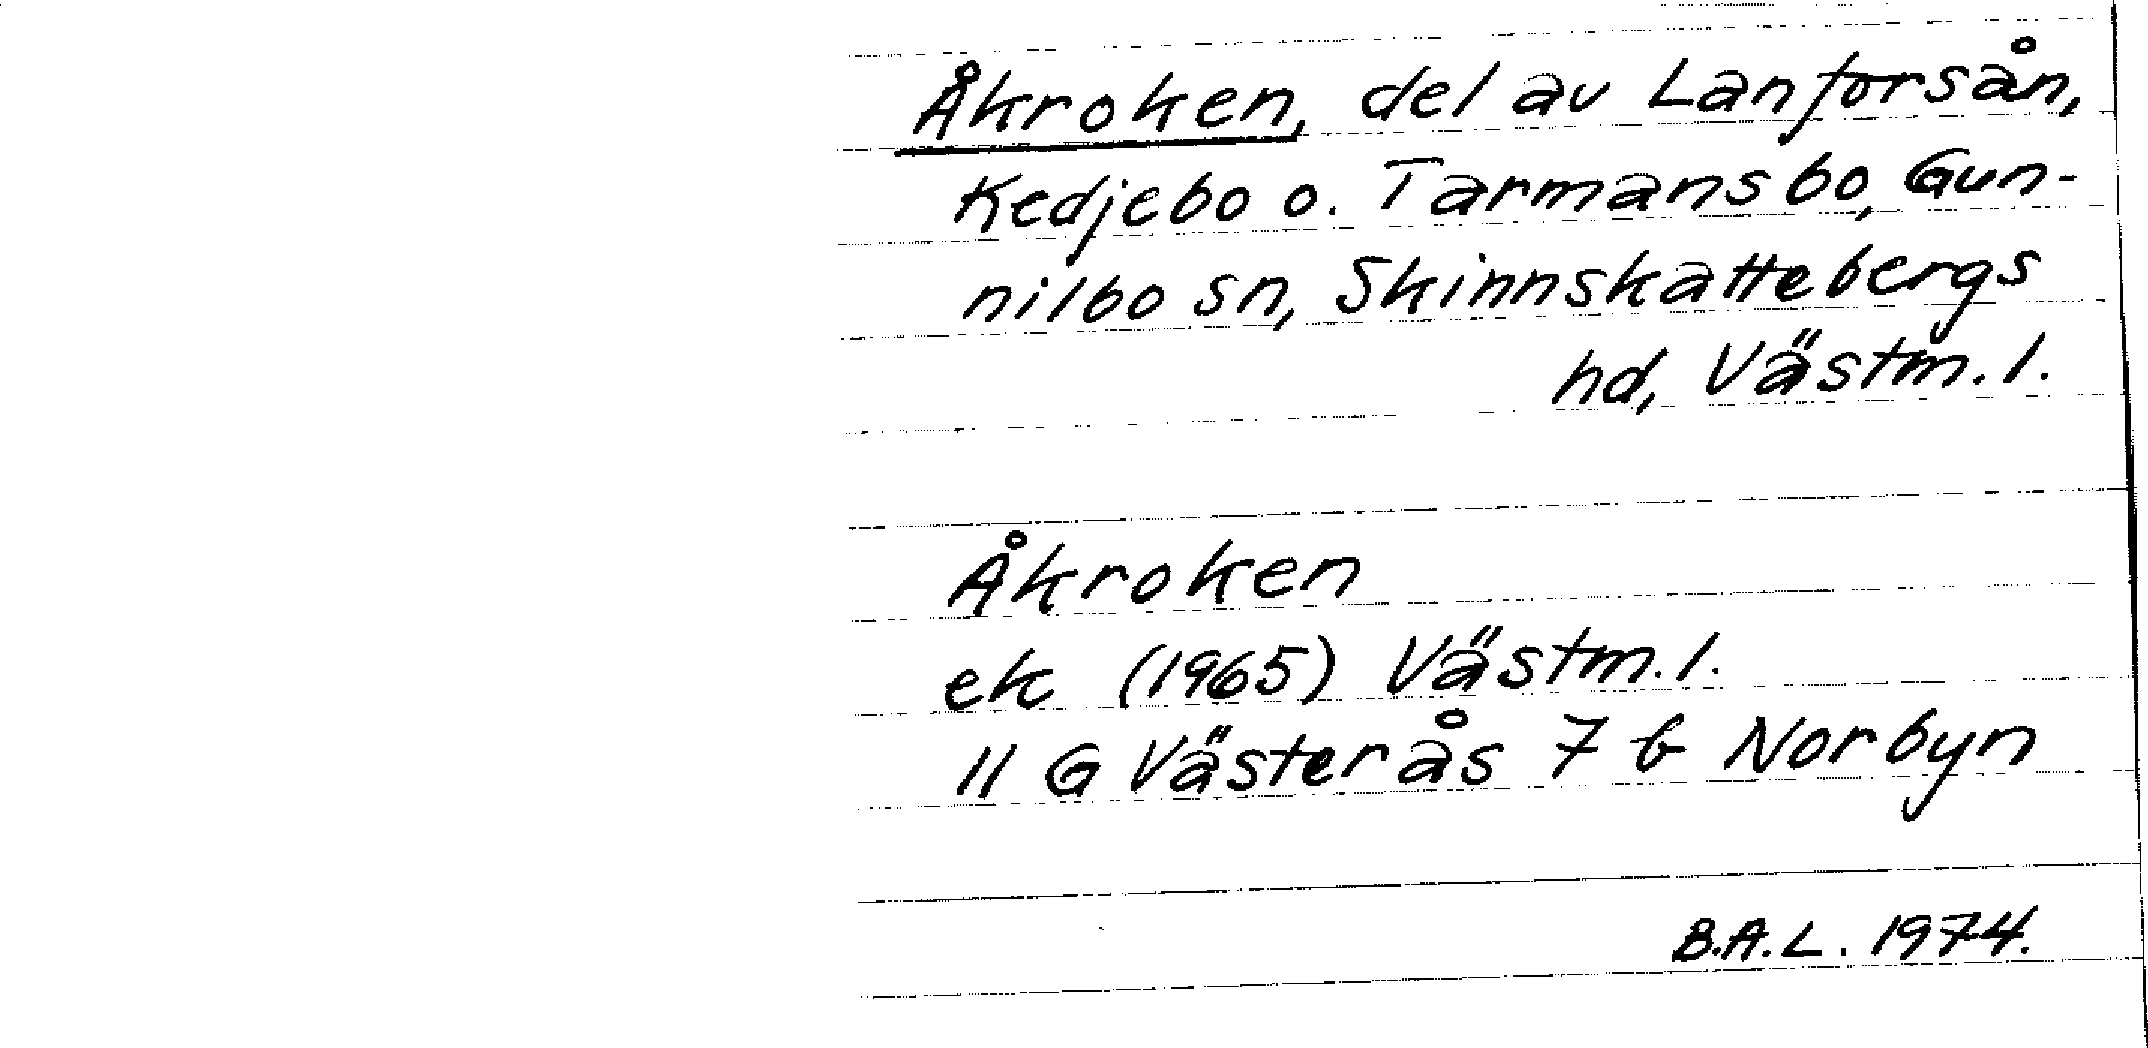 Åkroken, del av Lanforsån,
Kedjebo o. Tarmansbo, Gun-
nilbo sn, Skinnskattebergs
hd, Västm. l.
Åkroken
ek (1965) Västm. l.
11 G Västerås 7 b Norbyn
B.A.L. 1974.